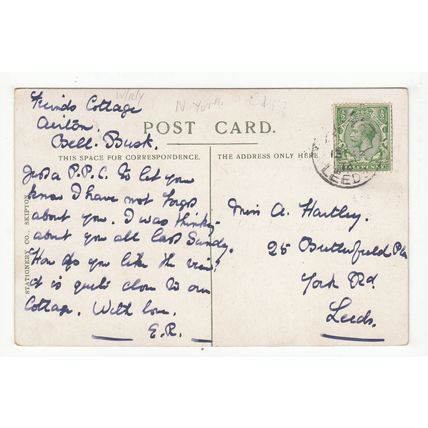 Friends Cottage
Airton.
Bell. Busk.
POST CARD.
THIS SPACE FOR CORRESPONDENCE.
THE ADDRESS ONLY HERE
Just a P.P.C. to let you
know I have not forgot
about you. I was thinking
about you all last Sunday.
How do you like the view?
it is quite close to our
Cottage. With love.
E.R.
Miss A. Hartley.
25 Butterfield Pla
York Rd.
Leeds.
LEEDS
STATIONERY CO. SKIPTON
N. York.